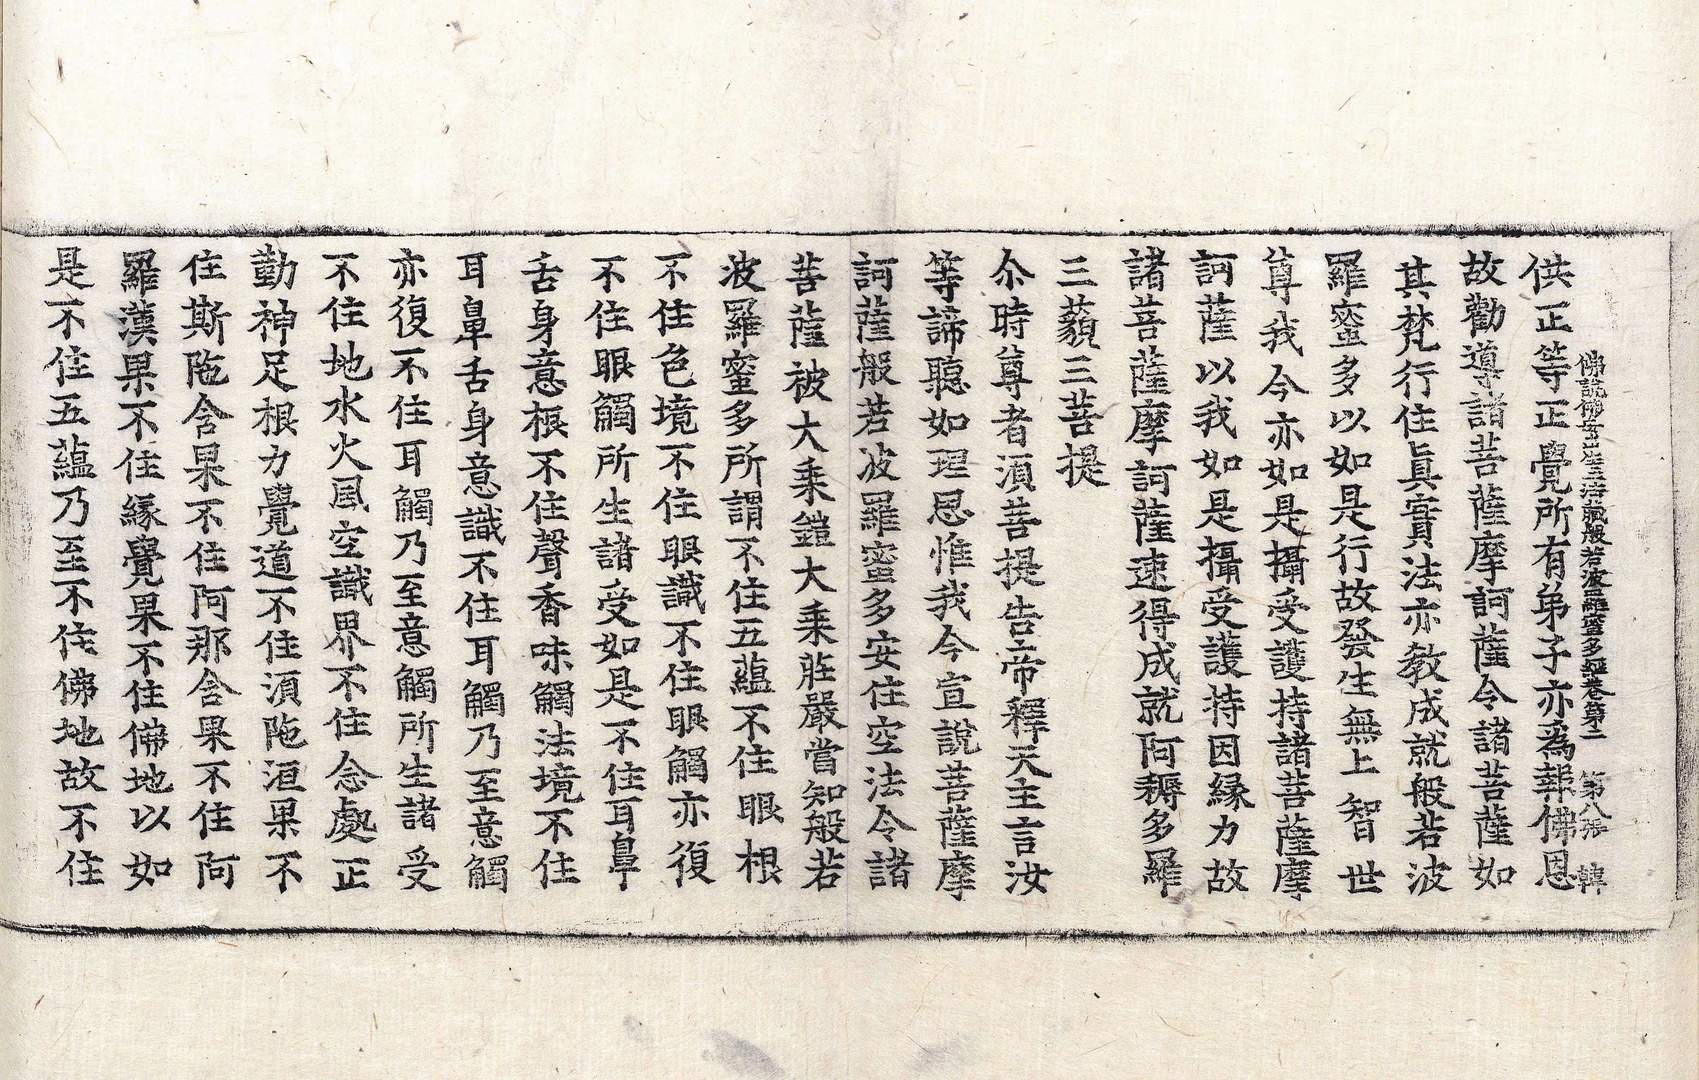 佛說佛母出生三法藏般若波羅蜜多經卷第二 第八張 韓
供正等正覺所有弟子亦爲報佛恩
故勸導諸菩薩摩訶薩令諸菩薩如
其梵行住眞實法亦教成就般若波
羅蜜多以如是行故發生無上智世
尊我今亦如是攝受護持諸菩薩摩
訶薩以我如是攝受護持因緣力故
諸菩薩摩訶薩速得成就阿耨多羅
三藐三菩提
尒時尊者湏菩提告帝釋天主言汝
等諦聽如理思惟我今宣說菩薩摩
訶薩般若波羅蜜多安住空法令諸
菩薩被大乘鎧大乘莊嚴當知般若
波羅蜜多所謂不住五蘊不住眼根
不住色境不住眼識不住眼觸亦復
不住眼觸所生諸受如是不住耳鼻
舌身意根不住聲香味觸法境不住
耳鼻舌身意識不住耳觸乃至意觸
亦復不住耳觸乃至意觸所生諸受
不住地水火風空識界不住念處正
勤神足根力覺道不住湏陁洹果不
住斯陁含果不住阿那含果不住阿
羅漢果不住緣覺果不住佛地以如
是不住五蘊乃至不住佛地故不住